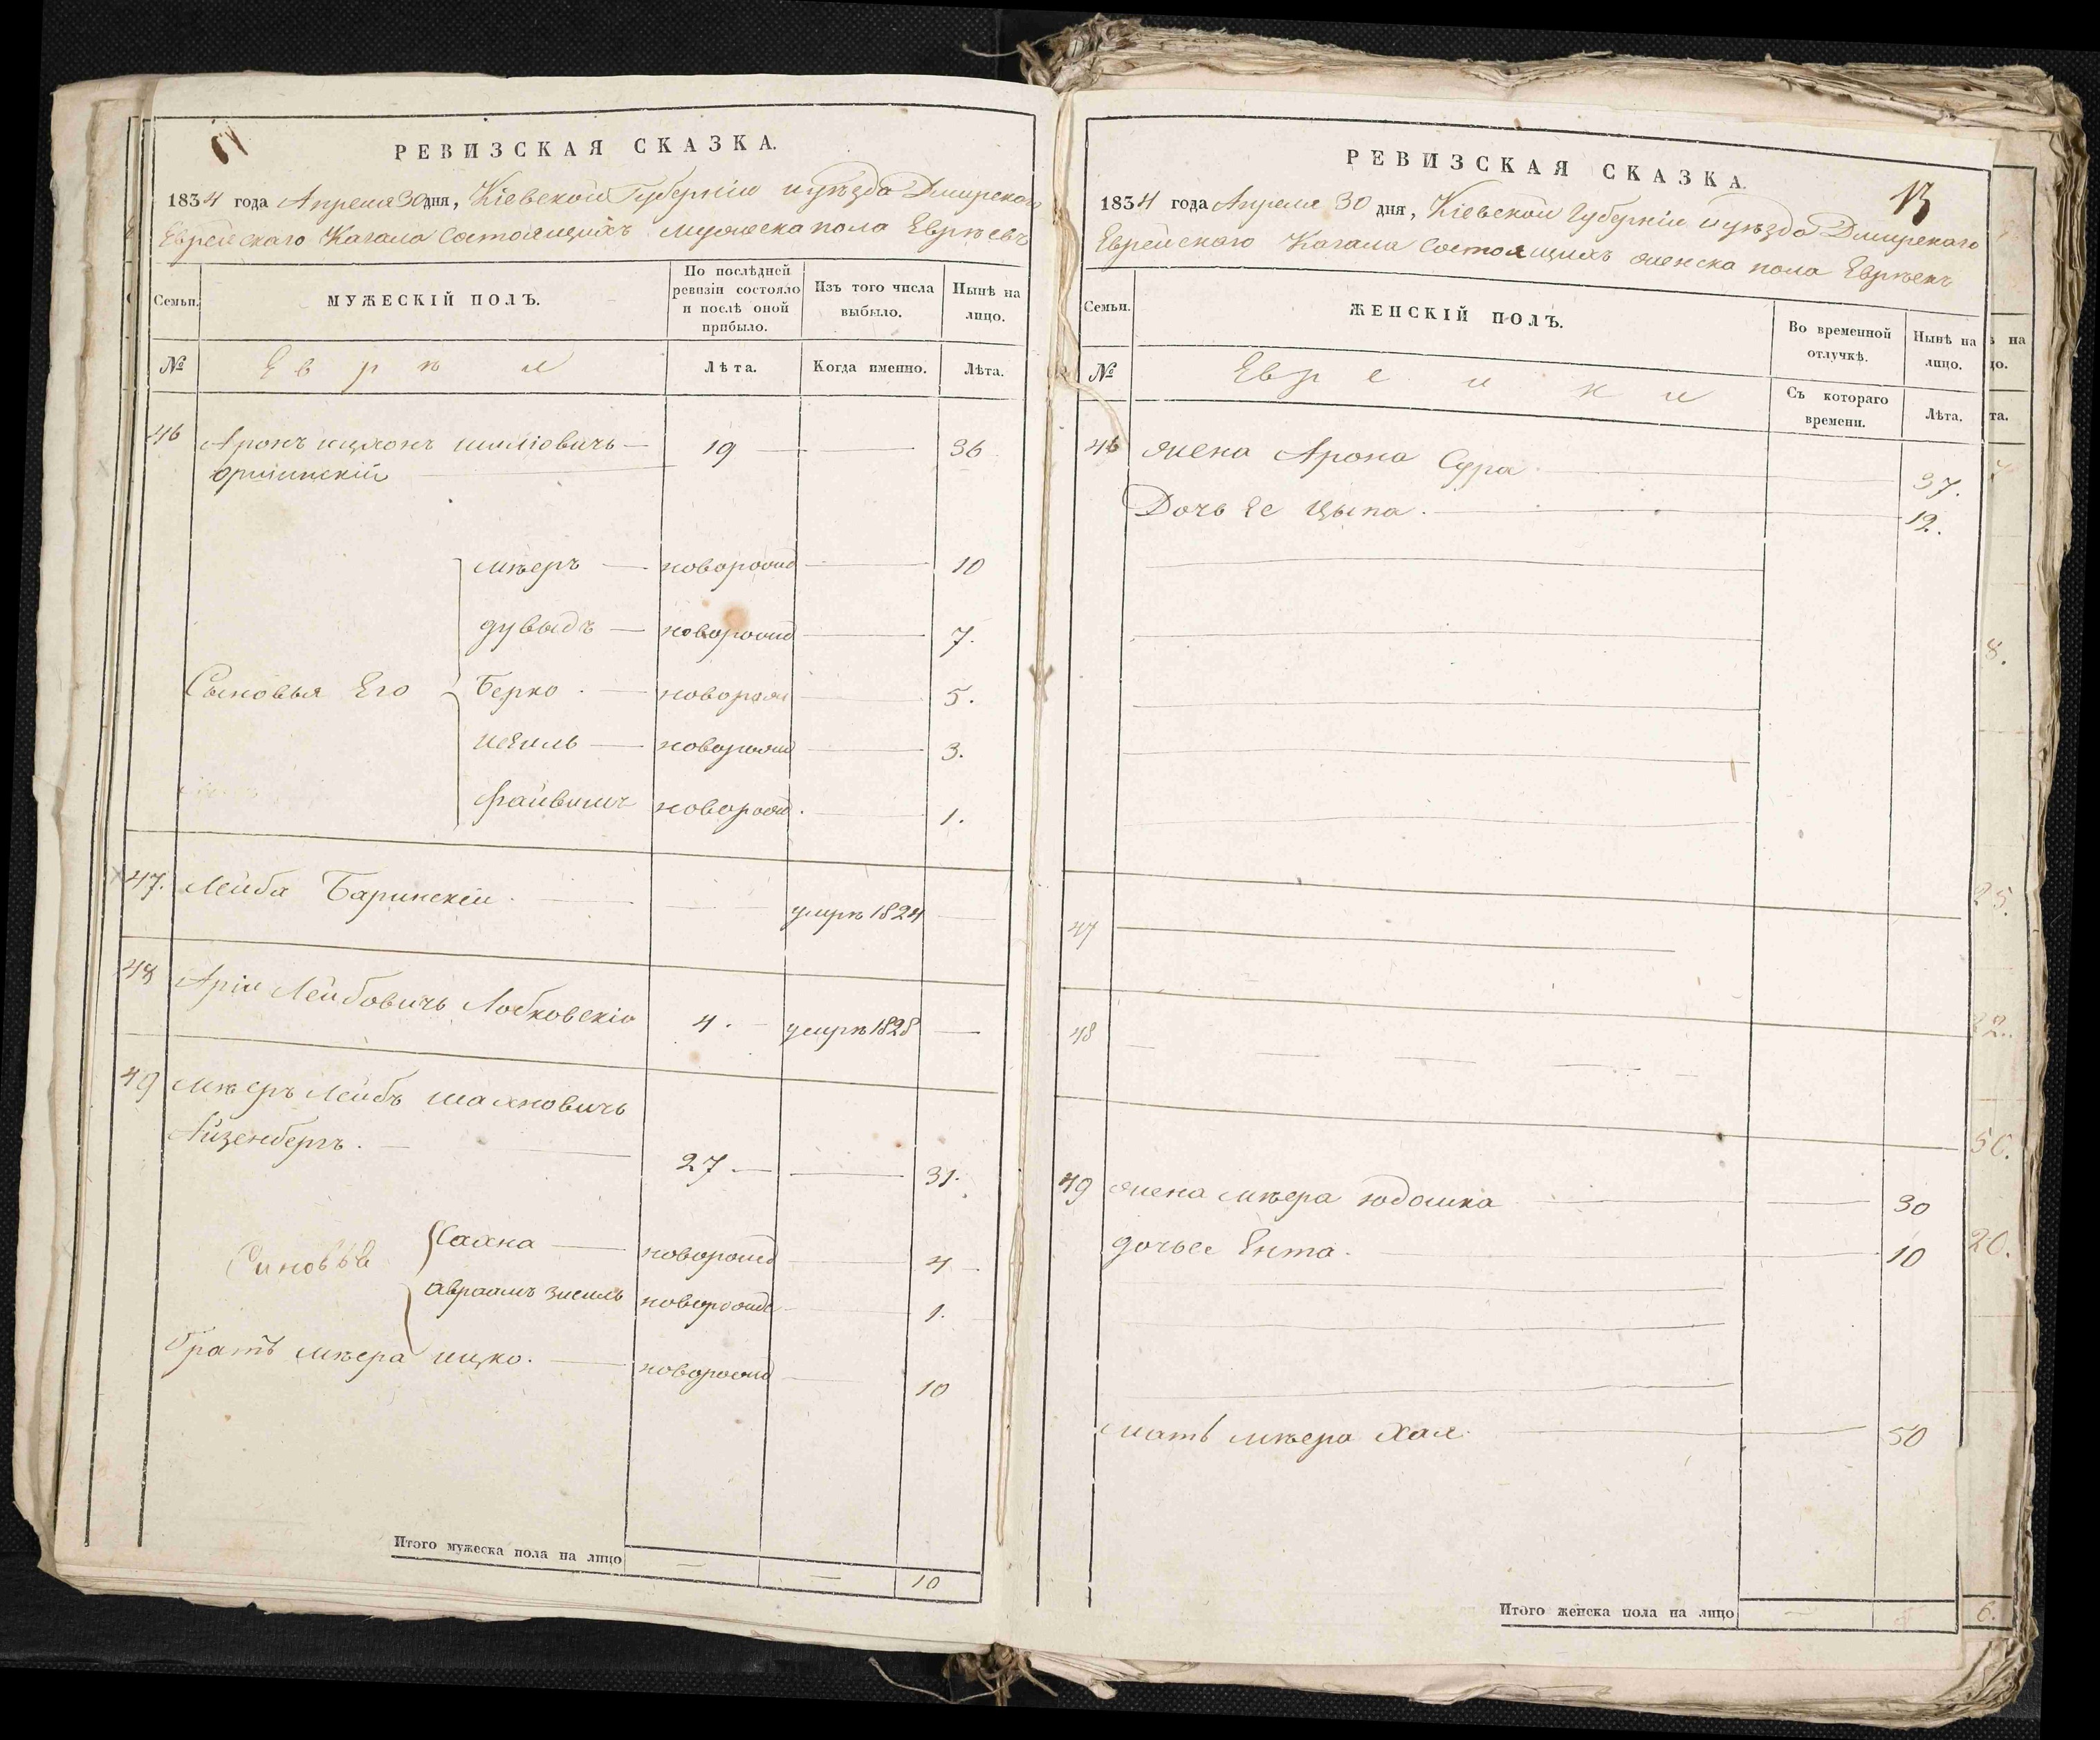 РЕВИЗСКАЯ СКАЗКА.
1834 года Апреля 30 дня, Кіевской Губерніи и уѣзда Дмирскаго
Еврейскаго Кагала Состоящихъ мужеска пола Еврѣевъ
Семьи.
МУЖЕСКІЙ ПОЛЪ.
По послѣдней ревизіи состояло и послѣ оной прибыло.
Изъ того числа выбыло.
Нынѣ на лицо.
№
Еврѣи
Лѣта.
Когда именно.
Лѣта.
46 Аронъ ицхокъ шміовичь 19 36
Мѣеръ новорожд 10
дувыдъ новорожд 7.
Сыновья Его Берко новорож 5.
новорожд 3.
Файвишъ новорожд. 1.
47. Лейба Баринскій умръ 1824
48 Арій Лейбовичь Лобковскій 4. умръ 1828
49 Мѣеръ Лейбъ шахновичь
Айзенбергъ. 27 31.
Синовьѣ Сахна новорожд 4
авраамъ зисель новорожд 1.
братъ мѣера ицко. новорожд 10
Итого мужеска пола на лицо — — 10
РЕВИЗСКАЯ СКАЗКА.
13
1834 года Апреля 30 дня, Кіевской Губерніи и уѣзда Дмирскаго
Еврейскаго Кагала Состоящихъ женска пола Еврѣекъ
Семьи.
ЖЕНСКІЙ ПОЛЪ.
Во временной отлучкѣ.
Нынѣ на лицо.
№
Еврейки
Съ котораго времени.
Лѣта.
46 жена Арона Сура 37.
Дочь Ее Цыпа. 12.
47
48
49 жена мѣера юдашка 30
дочь ее Ента. 10
мать мѣера Хая. 50
Итого женска пола на лицо